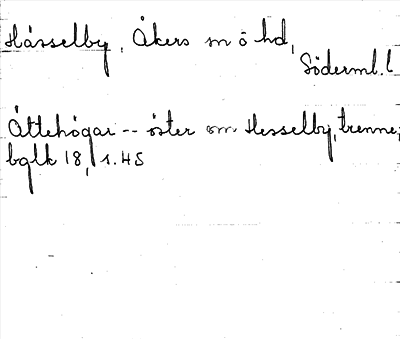 Hässelby, Åkers sn ö hd,
Söderml. l
Ättehögar -- öster om Hesselby, trenne;
bqlk 18, s. 45